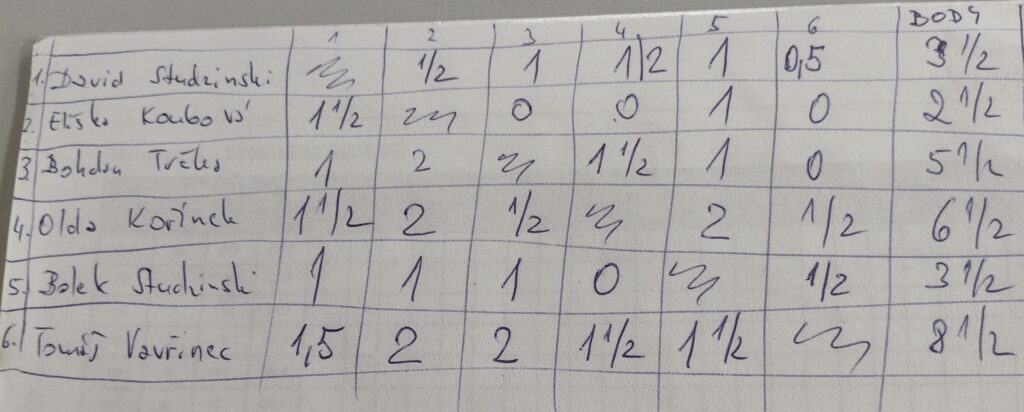 1 2 3 4 5 6 BODY
1. David Studzinski 1/2 1 1/2 1 0,5 3 1/2
2. Eliška Koubová 1 1/2 0 0 1 0 2 1/2
3. Bohdan 1 2 1 1/2 1 0 5 1/2
4. Olda Kořínek 1 1/2 2 1/2 2 1/2 6 1/2
5. Bolek Studzinski 1 1 1 0 1/2 3 1/2
6. Tomáš Vavřinec 1,5 2 2 1 1/2 1 1/2 8 1/2